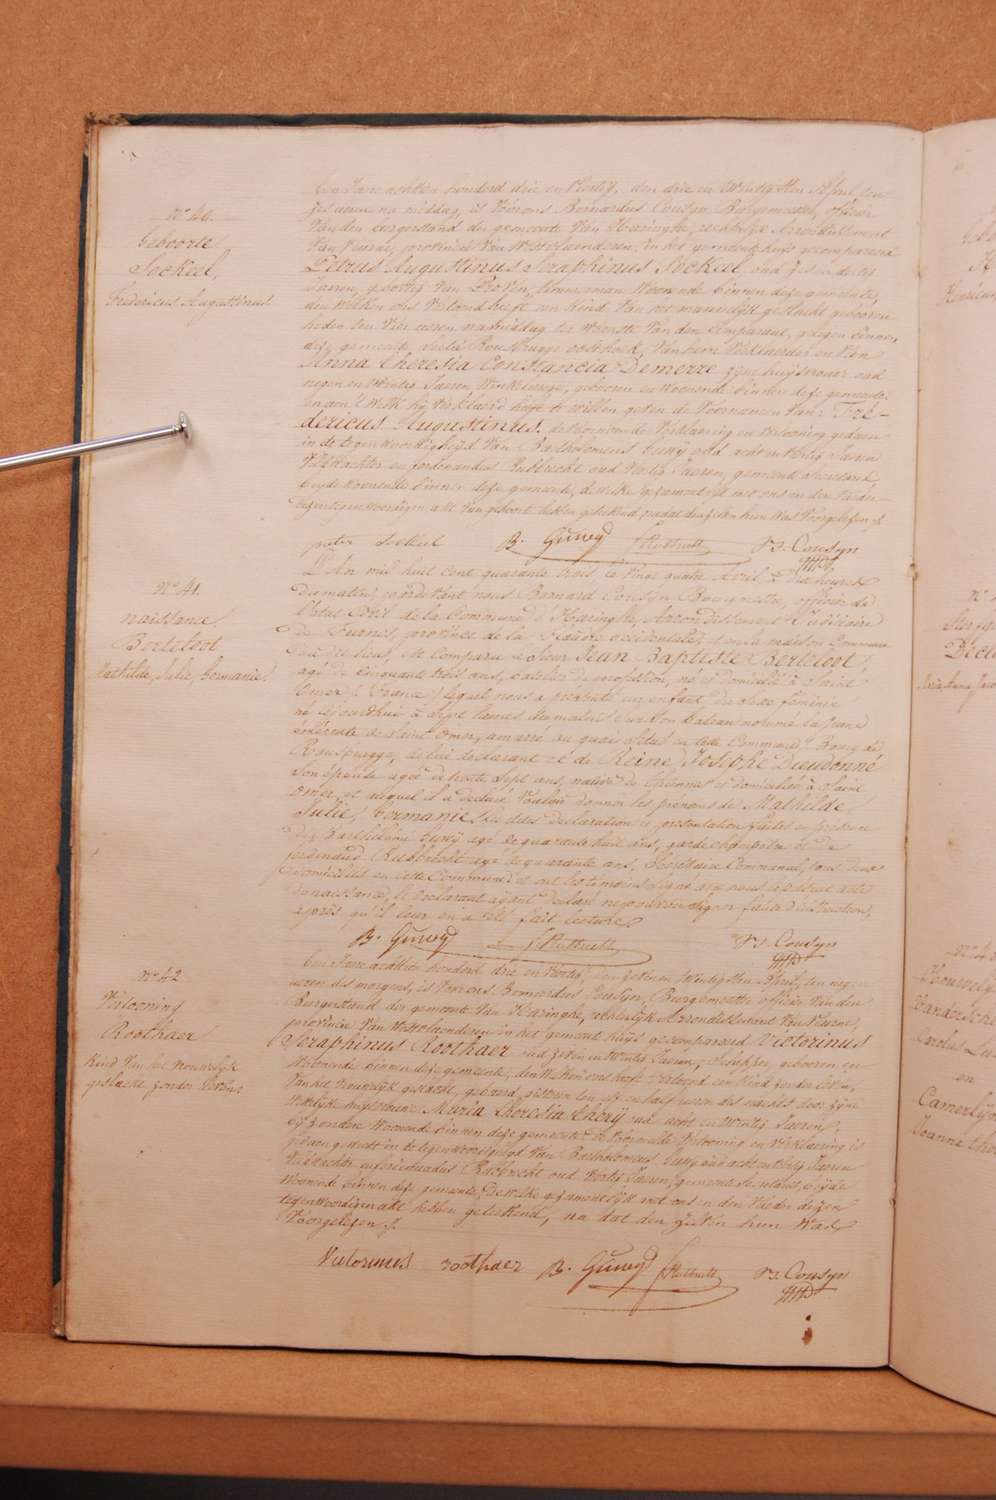 N° 40.
Geboorte
Sockeel,
Fredericus Augustinus
Ten Jare achttien honderd drie en veertig, den drie en twintigsten April, ten
zes uren na middag, is Voor ons Bernardus Cousyn Burgemeester, officier
Van den burgerstand der gemeente Van Haringhe, rechterlyk Arrondissement
Van Veurne, provincie Van Westvlaenderen, in het gemeente huys gecompareerd
Petrus Augustinus Seraphinus Sockeel, oud
Jaeren, geboren Van Proven, timmerman Woonende binnen deze gemeente,
den Welken ons Vertoond heeft een Kind Van het mannelyk geslacht geboren
heden ten Vier uren namiddag ter Woonste Van den Comparant, gelegen binnen
deze gemeente, Sectie Rousbrugge oosthoek, Van hem Verklaerder en Van
Anna Theresia Constancia Demerre zyne huysvrouw oud
negen en twintig Jaeren, Winkelierge, geboren en Woonende binnen deze gemeente,
en aen 't Welk hy Verklaerd heeft te willen geven de Voornamen Van Fré-
dericus Augustinus. de Voornoemde Verklaering en Vertooning gedaen
in de tegenwoordigheyd Van Bartholomeus Guwy oud acht en Veertig Jaeren
Veldwachter en ferdenandus Rubbrecht oud Veertig Jaeren, gemeente secretaris
beyde Woonende binnen deze gemeente, de welke gezamentlyk met ons en den Vader
deze tegenwoordigen akt Van geboorte hebben geteekend, nadat den zelven hun Was Voorgelezen
pieter sockeel B. Guwy f Rubbrecht B. J. Cousyn
N° 41.
naissance
Berteloot
Mathilde, Julie, Germanie.
L'An mil huit cent quarante trois le Vingt quatre Avril à dix heures
du matin, pardevant nous Bernard Cousyn Bourgmestre, officier de
l'état Civil de la Commune d'Haringhe, Arrondissement Judiciaire
de Furnes, province de la Flandre occidentale, et en la maison Commune
du dit lieu, est Comparu le Sieur Jean Baptiste Berteloot,
agé de Cinquante trois ans, batelier de profession, né et domicilié à Saint
Omer (France) lequel nous a présenté un enfant du Sexe féminin
né cejourdhui à Sept heures du matin Sur Son bateau nommé la Jeune
de Saint Omer, amarré au quai Situé en cette Commune, Bourg de
Rousbrugge, de lui declarant et de Reine Josephe Dieudonné
Son épouse agée de trente Sept ans, native de et domiciliée à Saint
Omer, et auquel il a declaré Vouloir donner les prénoms de Mathilde
Julie, Germanie, les dites declaration et présentation faites en présence
de Barthélémi Guwy agé de quarante huit ans, garde champetre et de
ferdinand Rubbrecht agé de quarante ans, Secrétaire Communal, tous deux
domiciliés en cette Commune, et ont les témoins Signé avec nous le présent acte
de naissance, le declarant ayant declaré ne pouvoir Signer faute d'instruction,
après qu'il leur en a été fait lecture.
B. Guwy f Rubbrecht B. J. Cousyn
N° 42
Vertooning
Roothaer
Kind Van het Mannelyk
geslacht zonder leven.
Ten Jare achttien honderd drie en Veertig, den zeven en twintigsten April, ten negen
uren des morgens, is Voor ons Bernardus Cousyn, Burgemeester officier Van den
Burgerstand der gemeente Van Haringhe, rechterlyk Arrondissement Van Veurne,
provincie Van Westvlaenderen in het gemeente huys gecompareerd Victorinus
Seraphinus Roothaer oud zeven en twintig Jaeren, Schipper, geboren en
Woonende binnen deze gemeente, den Welken ons heeft Vertoond een Kind zonder leven,
Van het mannelyk geslacht, gebaerd gisteren ten elf en half uren des nachts door zyne
Wettelyke huysvrouw Maria Theresia Thery oud acht en twintig Jaeren,
byzondere Woonende binnen deze gemeente. de Voormelde Vertooning en Verklaering is
gedaen geweest in de tegenwoordigheyd Van Bartholomeus Guwy oud acht en Veertig Jaeren
Veldwachter en ferdenandus Rubbrecht oud Veertig Jaeren, gemeente Secretaris, beyde
Woonende binnen deze gemeente, de welke gezamentlyk met ons en den Vader dezen
tegenwoordigen akt hebben geteekend, na dat den zelven hun Was
Voorgelezen
Victorinus roothaer B. Guwy f Rubbrecht B. J. Cousyn